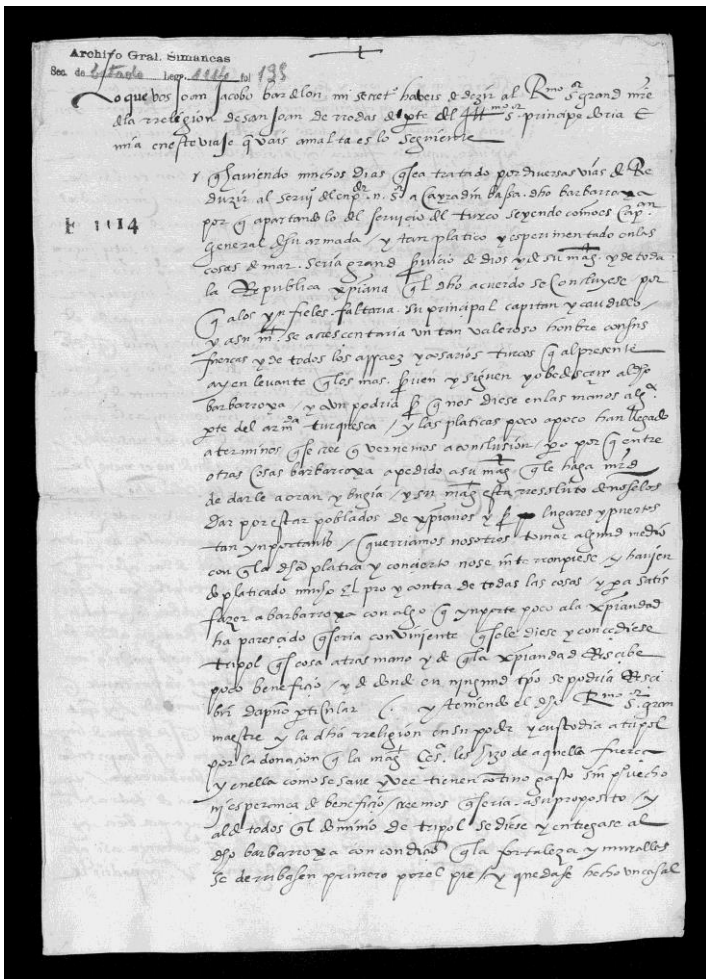 Archivo Gral. Simancas
Sec. de Estado Leg. 1114 fol 135
Lo que vos Joan Jacobo bardelon mi secret° haveis de dezir al Rmo sor grand mre
de la rreligion de san Joan de rrodas de pte del Illmo sor principe doria E
mia en este viaje q vais a malta es lo seguiente
q haviendo muchos dias q se a tratado por diversas vias de Re
duzir al servi° del enpdor n. sor a Cayradin bassa dho barbarroxa
E 1114
por q apartandolo del servicio del turco seyendo como es Capan
general de su armada y tan platico y esperimentado en las
cosas de mar. seria grand servicio de dios y de su magt y de toda
la Republica xpiana q el dho acuerdo se Concluyese por
q a los ynfieles faltaria su principal capitan y caudillo
y a su mt se acrescentaria un tan valeroso honbre con sus
fuercas y de todos los arraez y cosarios turcos q al presente
ay en levante q los mas siruen y siguen y obedescen al dho
barbarroxa / y aun podria ser q nos diese en las manos alga
pte del armda turquesca / y las platicas poco a poco han llegado
a terminos q se cree q vernemos a conclusion / pero por q entre
otras cosas barbarroxa a pedido a su magt q le haga mrd
de darle a oran y bugia / y su magt esta ressoluto de no se los
dar por estar poblados de xpianos y ser lugares y puertos
tan ynportantes / querriamos nosotros tomar algund medio
con q la dha platica y concierto no se interronpiese y havien
do platicado mucho El pro y contra de todas las cosas y pa satis
fazer a barbarroxa con algo q ynporte poco a la xpiandad
ha parescido q seria conviniente q se le diese y concediese
tripol q es cosa a tras mano y de q la xpiandad Rescibe
poco beneficio / y de donde en ningund tpo se podria Resci
bir dapño pticular / y teniendo el dho Rmo sor gran
maestre y la dha rreligion en su poder y custodia a tripol
por la donacion q la magt Cesa les hizo de aquella fuerca
y en ella como se save y vee tienen contino gasto sin provecho
ni esperanca de beneficio / creemos q seria a su proposito / y
al de todos q el dominio de tripol se diese y entregase al
dho barbarroxa con condicion q la fortaleza y murallas
se derribasen primero por el pie / y quedase hecho un casal